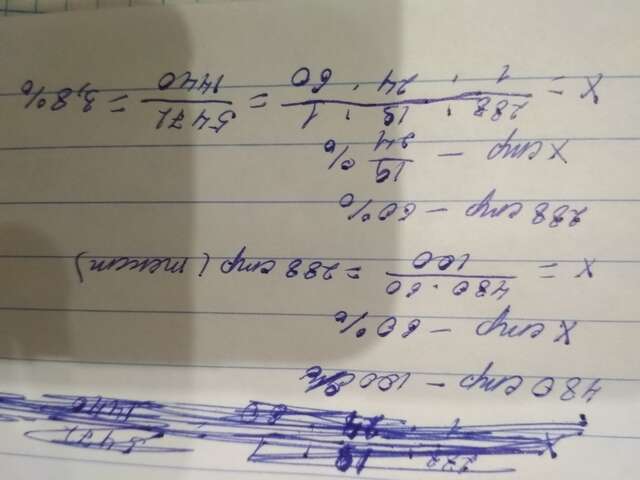 480 стр – 100%
X стр – 60%
X = 480 · 60 / 100 = 288 стр (текст)
288 стр – 60%
X стр – 19/24 %
X = 288 · 19 · 1 / 1 · 24 · 60 = 5472 / 1440 = 3,8%